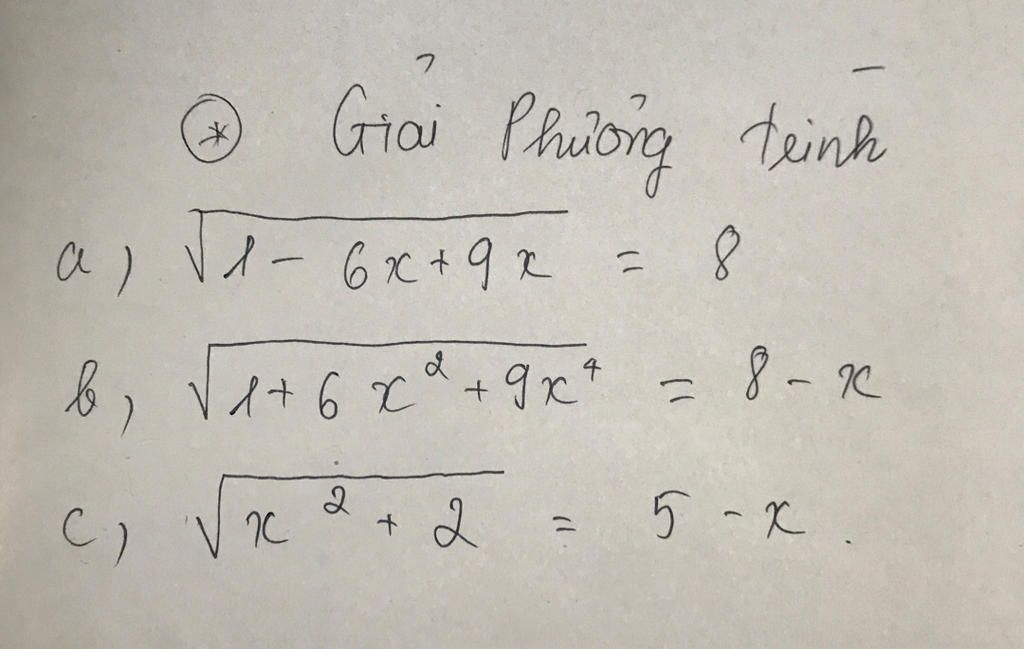 ⊛ Giải Phưởng trinh
a) √(1 - 6x + 9x) = 8
b) √(1 + 6x² + 9x⁴) = 8 - x
c) √(x² + 2) = 5 - x.